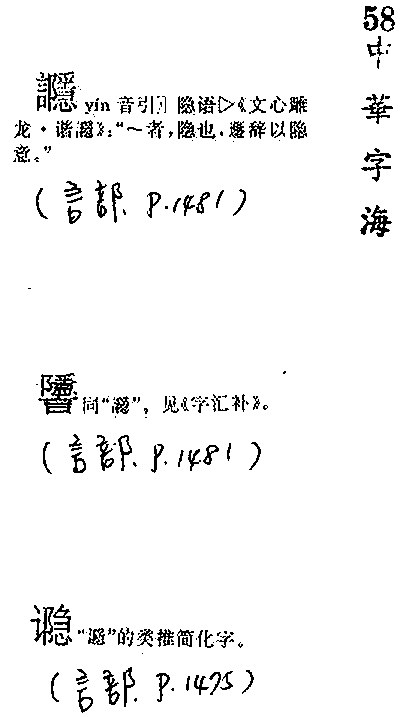 58
中華字海
讔 yǐn 音引〗隐语▷《文心雕
龙·谐讔》:“～者,隐也.遯辞以隐
意。”
(言部. P.1481)
同“讔”, 见《字汇补》。
(言部. P.1481)
“讔”的类推简化字。
(言部. P.1475)